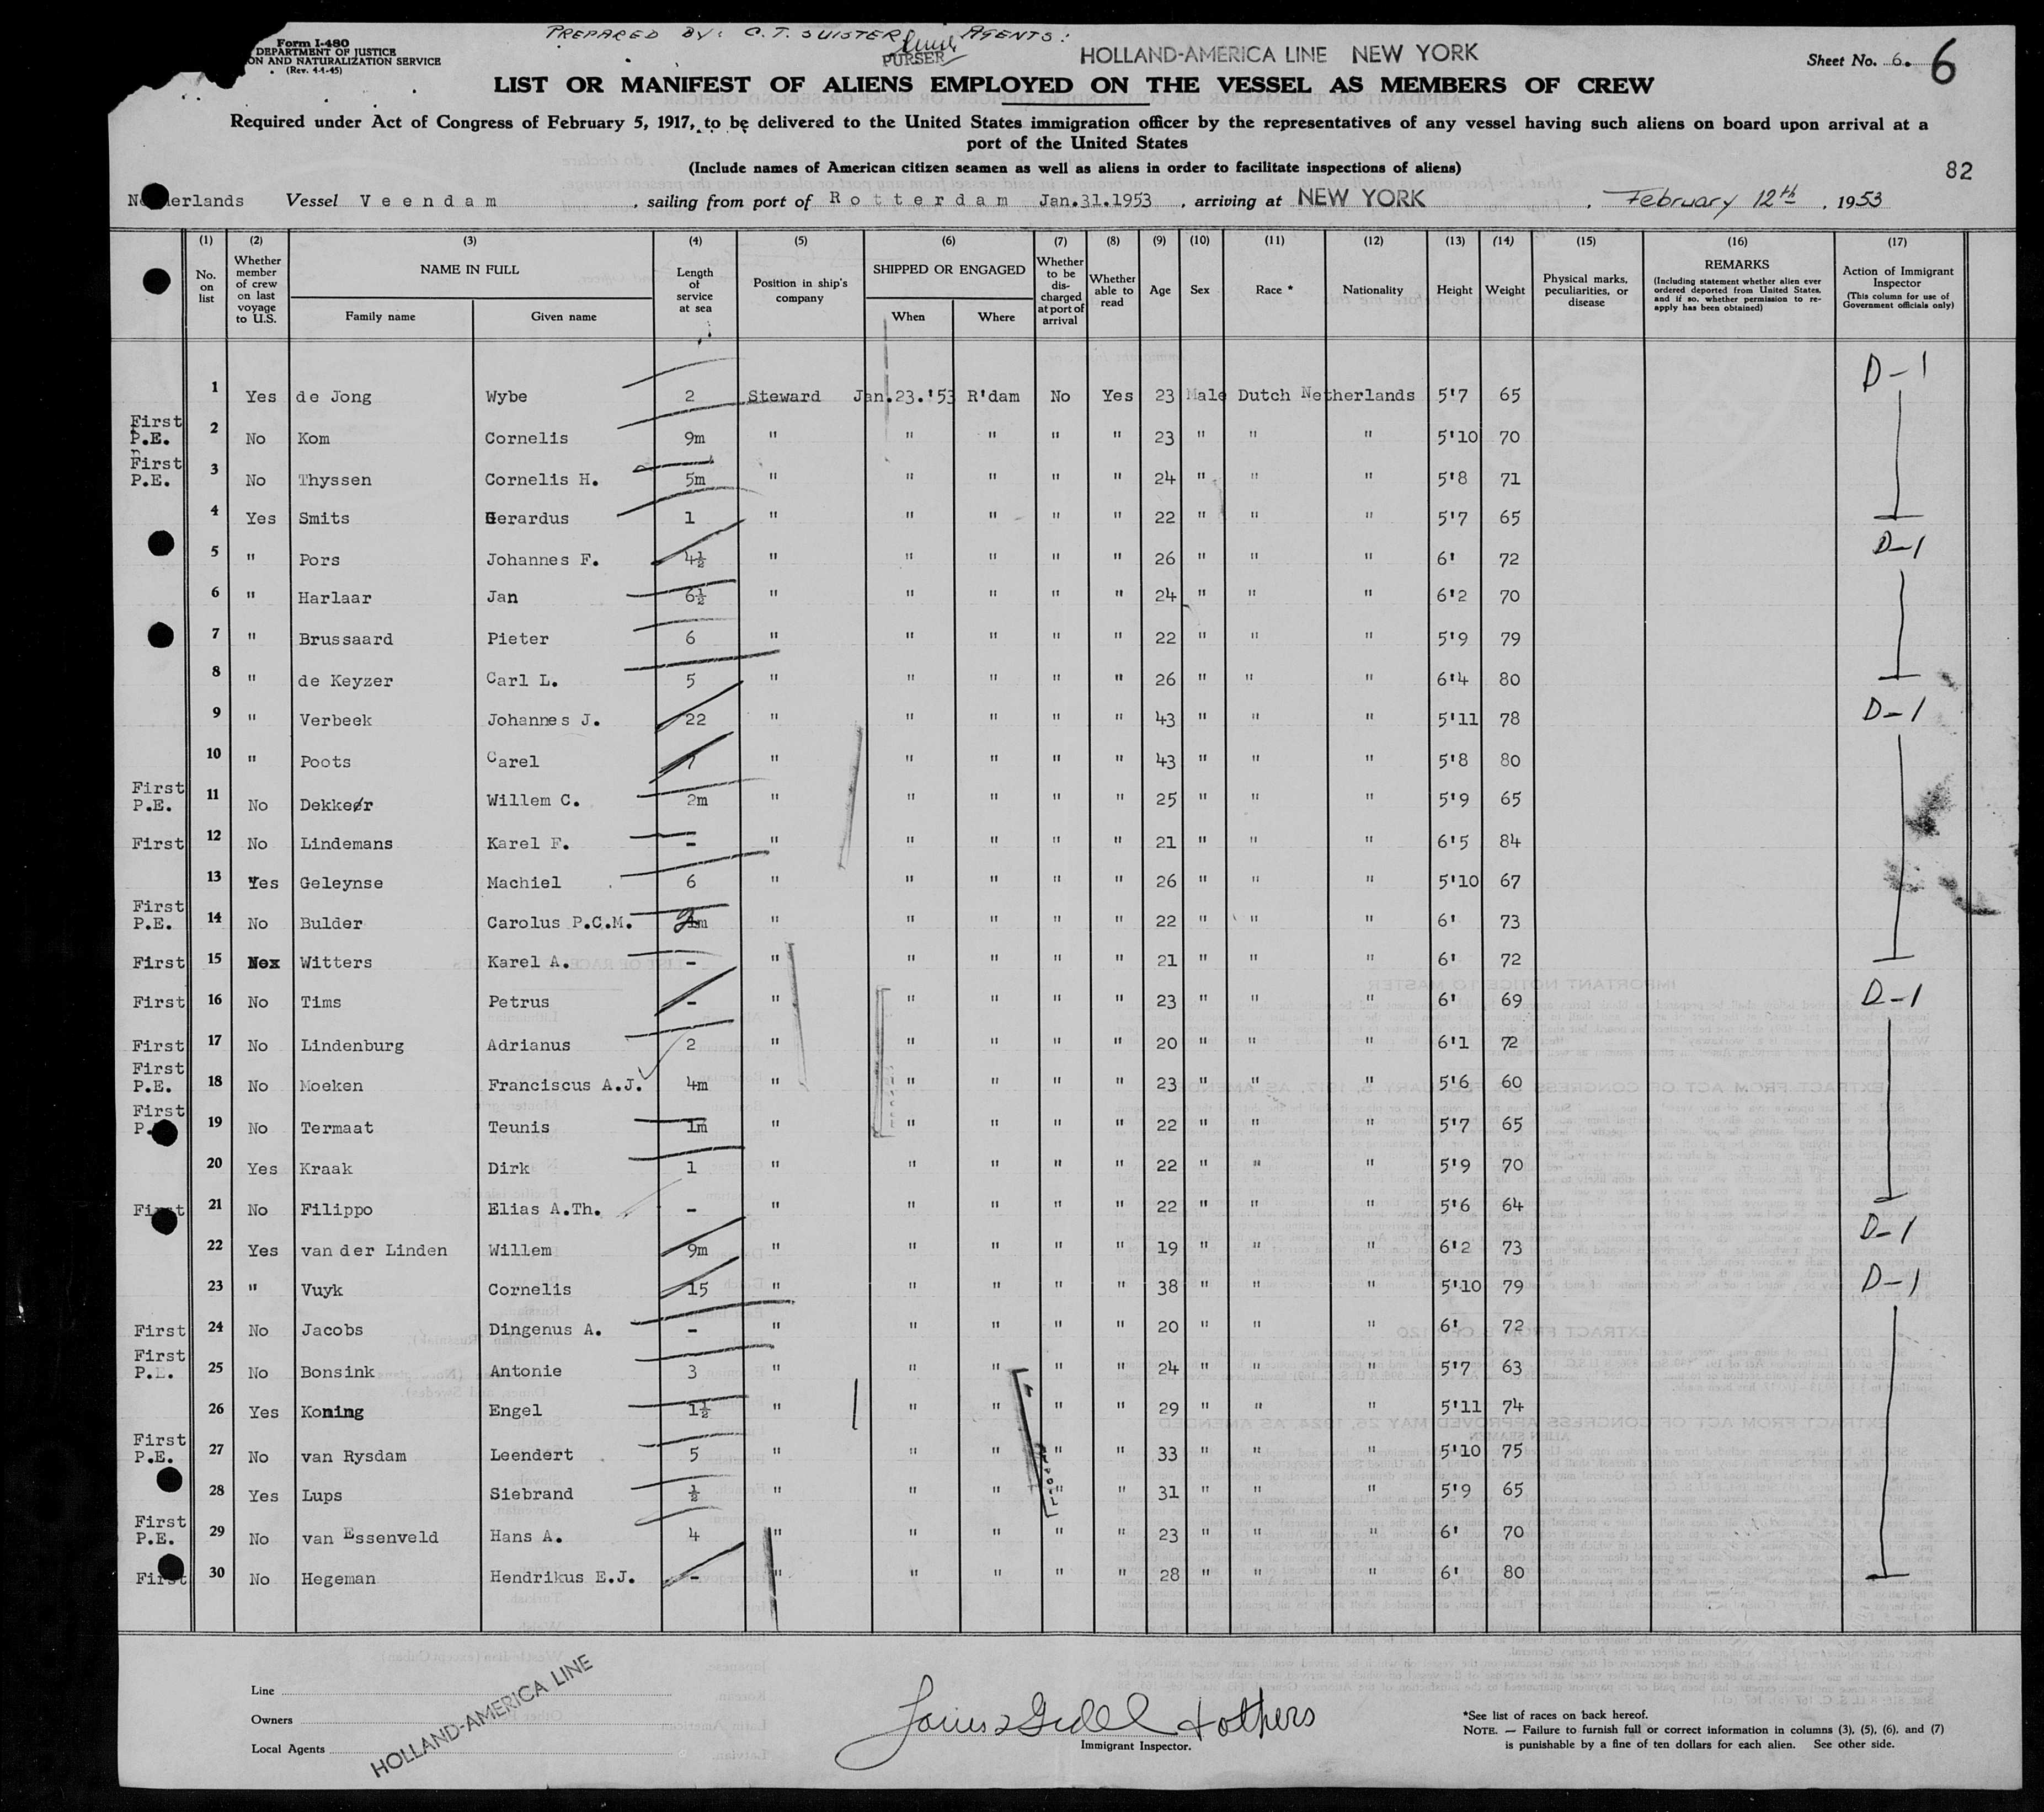 PREPARED BY: C. T. SUISTER AGENTS:
Form I-480
DEPARTMENT OF JUSTICE
ON AND NATURALIZATION SERVICE
(Rev. 4-1-45)
PURSER
HOLLAND-AMERICA LINE NEW YORK
Sheet No. 6. 6
LIST OR MANIFEST OF ALIENS EMPLOYED ON THE VESSEL AS MEMBERS OF CREW
Required under Act of Congress of February 5, 1917, to be delivered to the United States immigration officer by the representatives of any vessel having such aliens on board upon arrival at a
port of the United States
(Include names of American citizen seamen as well as aliens in order to facilitate inspections of aliens)
82
Netherlands Vessel Veendam, sailing from port of Rotterdam Jan.31.1953, arriving at NEW YORK, February 12th, 1953
(1) (2) (3) (4) (5) (6) (7) (8) (9) (10) (11) (12) (13) (14) (15) (16) (17)
No. on list
Whether member of crew on last voyage to U.S.
NAME IN FULL
Family name Given name
Length of service at sea
Position in ship's company
SHIPPED OR ENGAGED
When Where
Whether to be discharged at port of arrival
Whether able to read
Age
Sex
Race *
Nationality
Height
Weight
Physical marks, peculiarities, or disease
REMARKS
(Including statement whether alien ever ordered deported from United States, and if so, whether permission to reapply has been obtained)
Action of Immigrant Inspector
(This column for use of Government officials only)
1 Yes de Jong Wybe 2 Steward Jan.23.'53 R'dam No Yes 23 Male Dutch Netherlands 5'7 65 D-1
First P.E. 2 No Kom Cornelis 9m " " " " " 23 " " " 5'10 70
First P.E. 3 No Thyssen Cornelis H. 5m " " " " " 24 " " " 5'8 71
4 Yes Smits Gerardus 1 " " " " " 22 " " " 5'7 65
5 " Pors Johannes F. 4½ " " " " " 26 " " " 6' 72 D-1
6 " Harlaar Jan 6½ " " " " " 24 " " " 6'2 70
7 " Brussaard Pieter 6 " " " " " 22 " " " 5'9 79
8 " de Keyzer Carl L. 5 " " " " " 26 " " " 6'4 80
9 " Verbeek Johannes J. 22 " " " " " 43 " " " 5'11 78 D-1
10 " Poots Carel 7 " " " " " 43 " " " 5'8 80
First P.E. 11 No Dekker Willem C. 2m " " " " " 25 " " " 5'9 65
First 12 No Lindemans Karel F. - " " " " " 21 " " " 6'5 84
13 Yes Geleynse Machiel 6 " " " " " 26 " " " 5'10 67
First P.E. 14 No Bulder Carolus P.C.M. " " " " " 22 " " " 6' 73
First 15 Nox Witters Karel A. - " " " " " 21 " " " 6' 72
First 16 No Tims Petrus - " " " " " 23 " " " 6' 69 D-1
First 17 No Lindenburg Adrianus 2 " " " " " 20 " " " 6'1 72
First P.E. 18 No Moeken Franciscus A.J. 4m " " " " " 23 " " " 5'6 60
First P. 19 No Termaat Teunis 1m " " " " " 22 " " " 5'7 65
20 Yes Kraak Dirk 1 " " " " " 22 " " " 5'9 70
First 21 No Filippo Elias A.Th. - " " " " " 22 " " " 5'6 64
22 Yes van der Linden Willem 9m " " " " " 19 " " " 6'2 73 D-1
23 " Vuyk Cornelis 15 " " " " " 38 " " " 5'10 79 D-1
First 24 No Jacobs Dingenus A. - " " " " " 20 " " " 6' 72
First P.E. 25 No Bonsink Antonie 3 " " " " " 24 " " " 5'7 63
26 Yes Koning Engel 1½ " " " " " 29 " " " 5'11 74
First P.E. 27 No van Rysdam Leendert 5 " " " " " 33 " " " 5'10 75
28 Yes Lups Siebrand ½ " " " " " 31 " " " 5'9 65
First P.E. 29 No van Essenveld Hans A. 4 " " " " " 23 " " " 6' 70
First 30 No Hegeman Hendrikus E.J. - " " " " " 28 " " " 6' 80
Line
Owners
Local Agents
HOLLAND-AMERICA LINE
& others
Immigrant Inspector.
*See list of races on back hereof.
NOTE. — Failure to furnish full or correct information in columns (3), (5), (6), and (7)
is punishable by a fine of ten dollars for each alien. See other side.